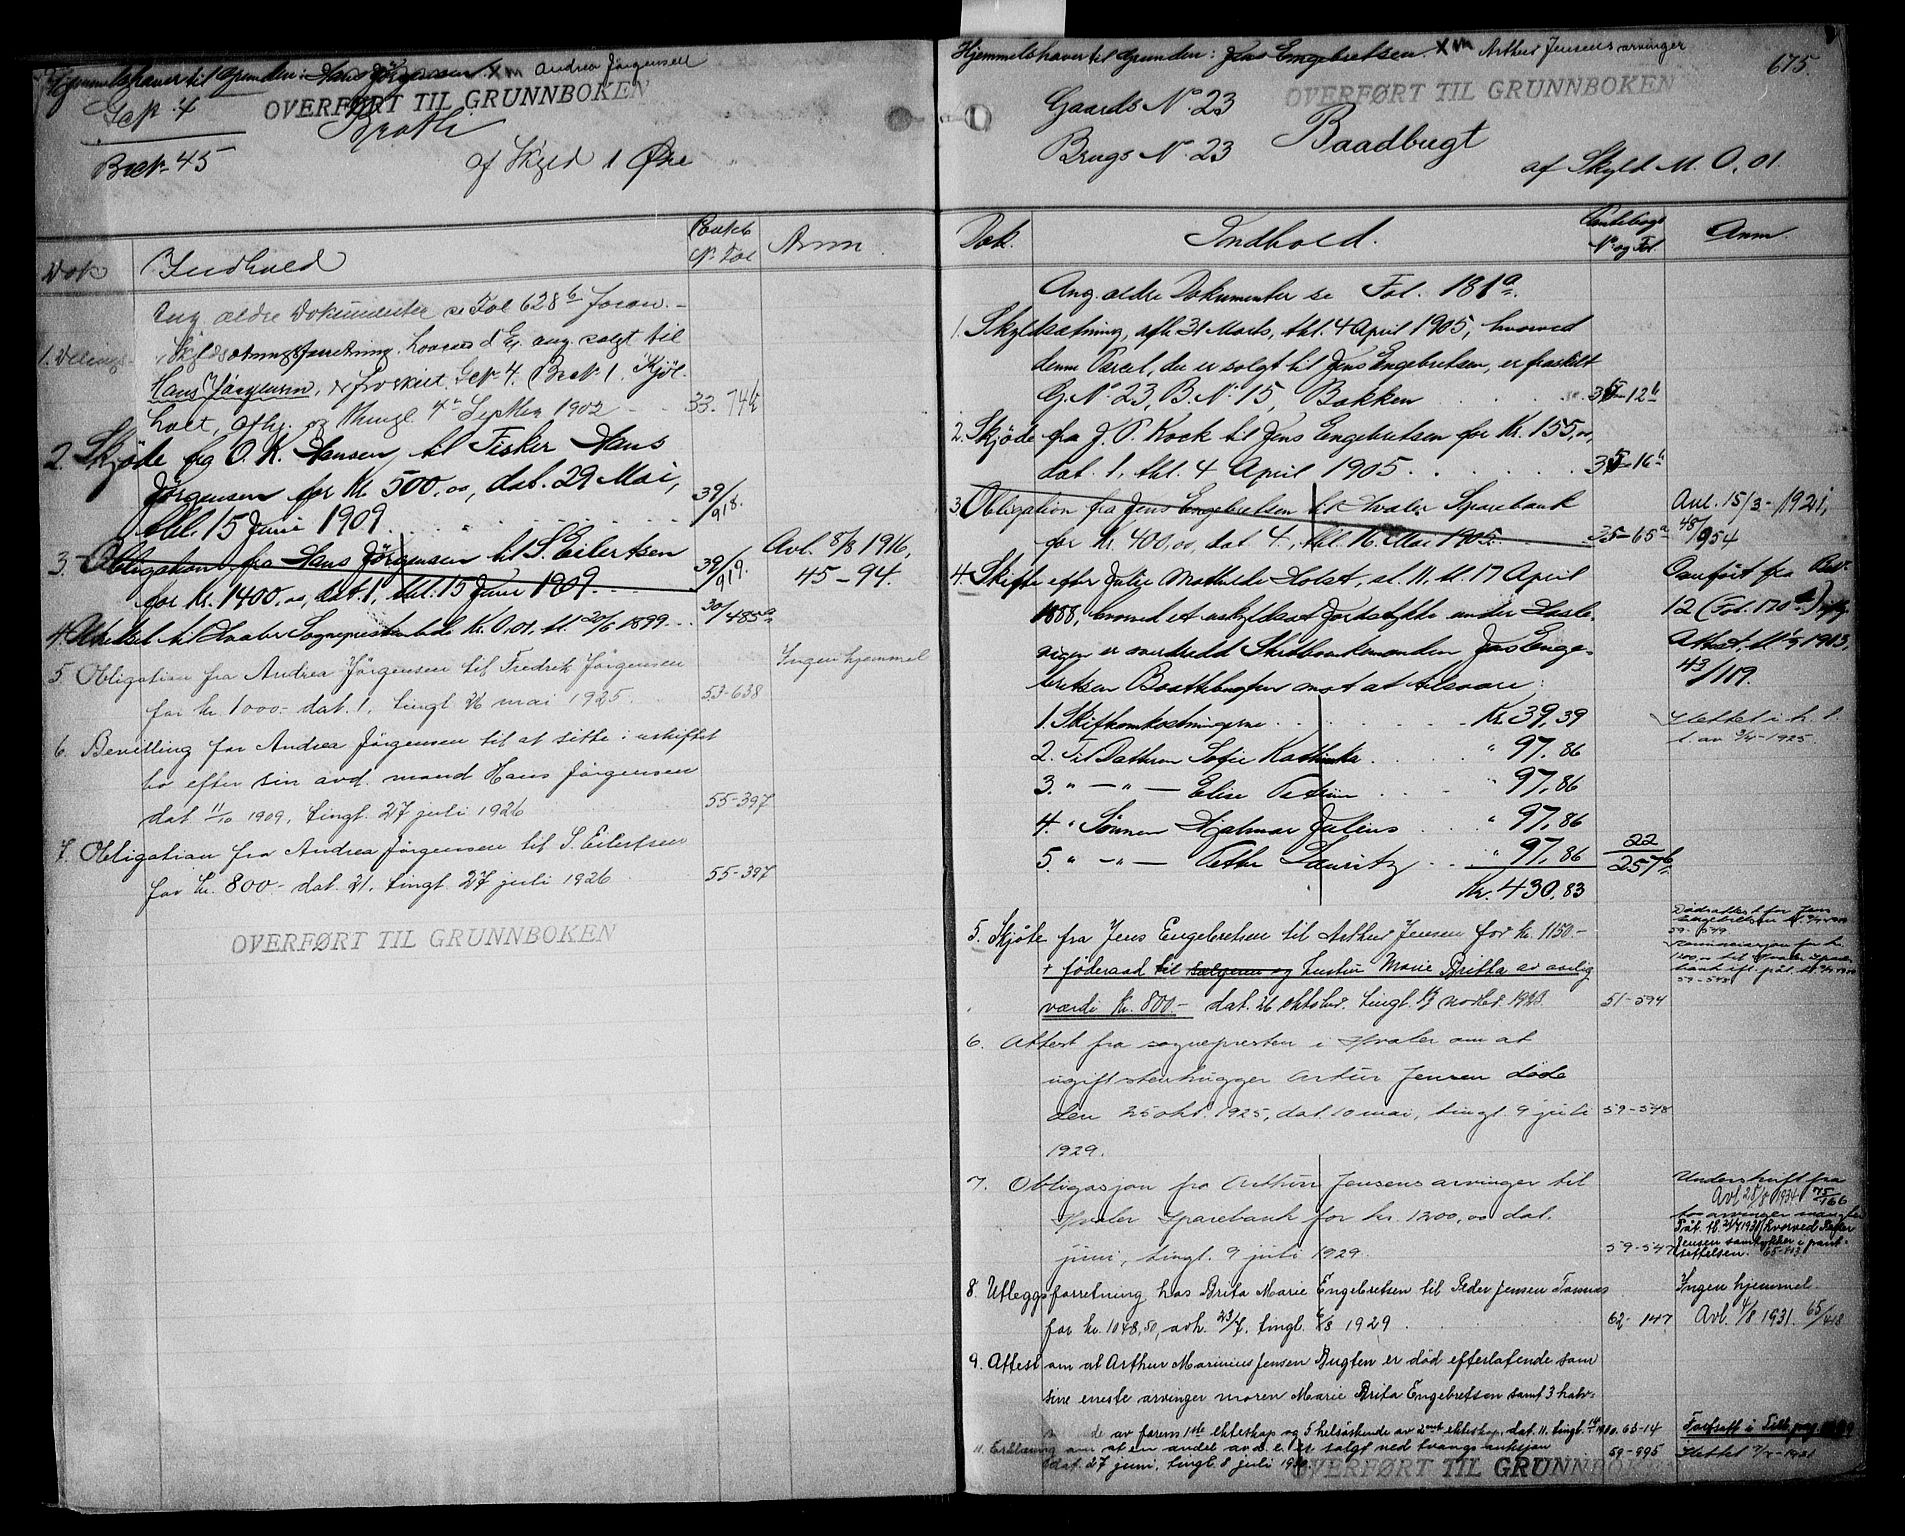 Hjemmelshaver til Grunden: Hans Jörgensen Xm Andrea Jörgensen
OVERFØRT TIL GRUNNBOKEN
G.N. 4
B.N. 45
af Skyld 1 Øre
Dok Indhold Anm
Ang. ældre Dokumenter se Fol 628b foran.
1. Skyldsætningsforretning, ang. solgt til
Hans Jörgensen, er fraskilt G.N. 4. B.N. 1. Kjöl-
holt, afhj. og thingl. 4de Septbr 1902 33. 74b
2. Skjöde fra O. K. Hansen til Fisker Hans
Jørgensen for Kr. 500,00, dat. 29 Mai,
thl. 15 Juni 1909 39/918.
3. Obligation fra Hans Jørgensen til S. Eilertsen Avl. 8/8 1916,
for Kr. 1400,00, dat. 1, thl. 15 Juni 1909. 39/919. 45-94.
4. til Hvaler Sognepræstembede Kr. 0,01, tl. 20/6 1899. 30/485a
5. Obligation fra Andrea Jörgensen til Fredrik Jörgensen Ingen hjemmel
for kr. 1000.- dat. 1, tingl. 26 mai 1925. 53-638
6. Bevilling for Andrea Jörgensen til at sitte i uskiftet
bo efter sin avd. mand Hans Jörgensen
dat 11/10 1909, tingl. 27 juli 1926 55-397
7. Obligation fra Andrea Jörgensen til S. Eilertsen
for kr. 800- dat. 21, tingl. 27 juli 1926 55-397
OVERFØRT TIL GRUNNBOKEN
Hjemmelshaver til Grunden: Jens Engebretsen. Xm Arthur Jensens arvinger
675.
OVERFØRT TIL GRUNNBOKEN
Gaards No. 23
Baadbugt
Brugs No. 23
af Skyld M. 0,01.
Dok. Indhold. Pantebogs No og Fol. Anm.
Ang. ældre Dokumenter se Fol. 181a.
1. Skyldsætning, afh. 31 Marts, thl. 4 April 1905, hvorved
denne Parcel, der er solgt til Jens Engebretsen, er fraskilt
G. No. 23, B. No. 15, Bakken 35-12b
2. Skjöde fra J. P. Kock til Jens Engebretsen for Kr. 155,00,
dat. 1, thl. 4 April 1905. 35-16a
3. Obligation fra Jens Engebretsen til Hvaler Sparebank Avl. 15/3-1921,
for Kr. 400,00, dat. 4., thl. 16. Mai 1905. 35-65a 48/954
4. Skifte efter Julie Mathilde Holst, sl. 11. tl. 17 April Overført fra
1888, hvorved et uskyldsat Jordstykke under 12 (Fol. 170a)
er overdradd Skibtømmermanden Jens Enge-
bretsen Baathbugten mot at tilsvare: 43/119.
1. Skifteomkostningerne Kr. 39,39 Slettet i h. t.
2. Til Datteren Sofie Kathinka " 97,86 l. av 3/4-1925.
3. " — " — Elise " 97,86
4. " Sønnen Hjalmar Julius " 97,86
5. " — " — Lauritz " 97,86 22/257b
Kr. 430,83
5. Skjöte fra Jens Engebretsen til Arthur Jensen for kr. 1150-
+ føderaad til sælgeren og hustru Marie Britta av aarlig
værdi kr. 800.- dat. 26 oktober, tingl. 13 novbr. 1923. 51-594
59-549
59-548
6. Attest fra sognepresten i Hvaler om at
ugift stenhugger Artur Jensen døde
den 25 okt. 1925, dat. 10 mai, tingl. 9 juli 59-548
1929.
7. Obligasjon fra Arthur Jensens arvinger til Underskrift fra
Avl 28/8 1934 75/166
Hvaler Sparebank for kr. 1200,00 dat.
juni, tingl. 9 juli 1929. 59-547
Jensen samtykker i pant-
settelsen. 65-413
8. Utleggsforretning hos Brita Marie Engebretsen til Peder Jensen Ingen hjemmel
for kr. 1048,50, avh. 23/7, tingl. 6/8 1929 62-147 Avl. 4/8 1931. 65/418
9. Attest om at Arthur Marinius Jensen Bugten er død efterlatende som
sine eneste arvinger moren Marie Brita Engebretsen samt 3 halv-
av farens 1ste ekteskap og 5 helsøskende av 2net ekteskap, dat. 11. tingl. 63-14
11. Erklæring om at en andel av d. e. l er solgt ved tvangsauksjon 59-995
dat. 27 juni, tingl. 8 juli
OVERFØRT TIL GRUNNBOKEN